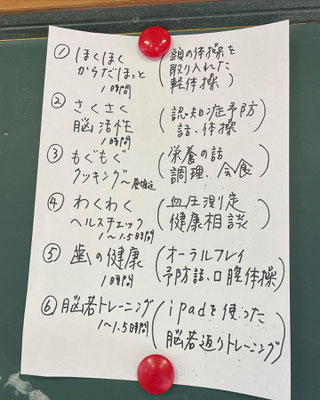 ① ほくほく
からだほっと
1時間
(頭の体操を
取り入れた
軽体操)
② さくさく
脳活性
1時間
(認知症予防
話、体操)
③ もぐもぐ
クッキング〜
(栄養の話
調理、会食)
④ わくわく
ヘルスチェック
1〜1.5時間
(血圧測定
健康相談)
⑤ 歯の健康
1時間
(オーラルフレイ
予防話、口腔体操)
⑥ 脳若トレーニング
1〜1.5時間
(ipadを使った
脳若返りトレーニング)